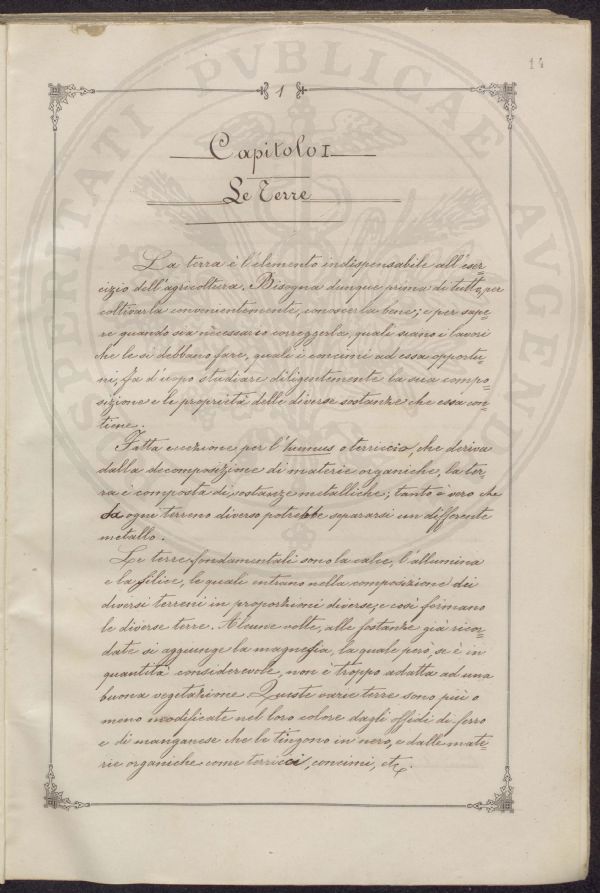 14
1
Capitolo I
Le Terre
La terra è l'elemento indispensabile all'eser=
cizio dell'agricoltura. Bisogna dunque prima di tutto, per
coltivarla convenientemente, conoscerla bene; e per sape=
re quando sia necessario correggerla, quali siano i lavori
che le si debbano fare, quali i concimi ad essa opportu=
ni, fa d'uopo studiare diligentemente la sua compo=
sizione e le proprietà delle diverse sostanze che essa con=
tiene.
Fatta eccezione per l'humus o terriccio, che deriva
dalla decomposizione di materie organiche, la ter=
ra è composta di sostanze metalliche; tanto è vero che
da ogni terreno diverso potrebbe separarsi un differente
metallo.
Le terre fondamentali sono la calce, l'allumina
e la silice, le quali entrano nella composizione dei
diversi terreni in proporzioni diverse; e così formano
le diverse terre. Alcune volte, alle sostanze già ricor=
date si aggiunge la magnesia, la quale però, se è in
quantità considerevole, non è troppo adatta ad una
buona vegetazione. Queste varie terre sono più o
meno modificate nel loro colore dagli ossidi di ferro
e di manganese che le tingono in nero, e dalle mate=
rie organiche come terricci, concimi, etc.
PROSPERITATI PVBLICAE AVGENDAE